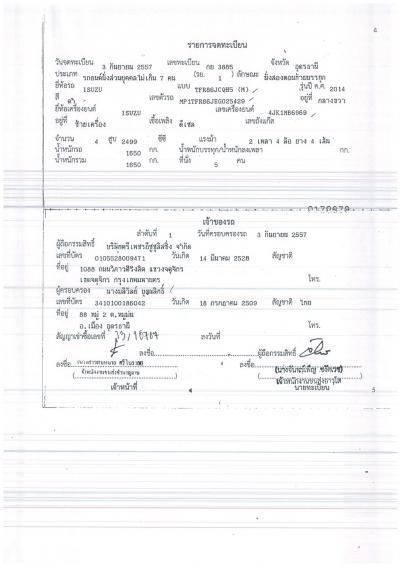 4
รายการจดทะเบียน
วันจดทะเบียน 3 กันยายน 2557 เลขทะเบียน กย 3885 จังหวัด อุดรธานี
ประเภท รถยนต์นั่งส่วนบุคคลไม่เกิน 7 คน (รย. 1) ลักษณะ นั่งสองตอนท้ายบรรทุก
ยี่ห้อรถ ISUZU แบบ TFR86JCQH5 (M) รุ่นปี ค.ศ. 2014
สี ดำ เลขตัวรถ MP1TFR86JEG025429 อยู่ที่ กลางขวา
ยี่ห้อเครื่องยนต์ ISUZU เลขเครื่องยนต์ 4JK1MB6969
อยู่ที่ ซ้ายเครื่อง เชื้อเพลิง ดีเซล เลขถังแก๊ส
จำนวน 4 สูบ 2499 ซีซี แรงม้า 2 เพลา 4 ล้อ ยาง 4 เส้น
น้ำหนักรถ 1650 กก. น้ำหนักบรรทุก/น้ำหนักลงเพลา กก.
น้ำหนักรวม 1650 กก. ที่นั่ง 5 คน
เจ้าของรถ
ลำดับที่ 1 วันที่ครอบครองรถ 3 กันยายน 2557
ผู้ถือกรรมสิทธิ์ บริษัทตรีเพชรอีซูซุลิสซิ่ง จำกัด
เลขที่บัตร 0105528009471 วันเกิด 14 มีนาคม 2528 สัญชาติ
ที่อยู่ 1088 ถนนวิภาวดีรังสิต แขวงจตุจักร
เขตจตุจักร กรุงเทพมหานคร โทร.
ผู้ครอบครอง
เลขที่บัตร 3410100186042 วันเกิด 18 กรกฎาคม 2509 สัญชาติ ไทย
ที่อยู่ 88 หมู่ 2 ต.หมูม่น
อ.เมือง อุดรธานี โทร.
สัญญาเช่าซื้อเลขที่ ลงวันที่
ลงชื่อ ผู้ถือกรรมสิทธิ์
ลงชื่อ ลงชื่อ
เจ้าหน้าที่ นายทะเบียน
4 5